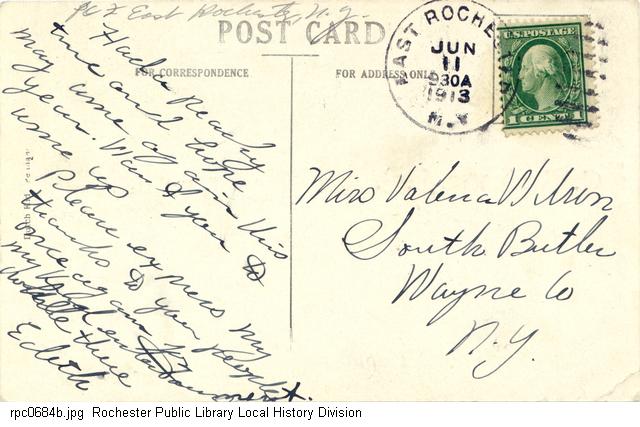 East Rochester, N.Y.
POST CARD
FOR CORRESPONDENCE
FOR ADDRESS ONLY
EAST ROCHES
JUN
11
930A
1913
N.Y.
U.S. POSTAGE
1 CENT
Had a peachy
time and hope
may come again this
year. Want you to
come up
Please express my
thanks to your people
once again for
my royal entertainment
while there
Edith
Miss Valena Wilson
South Butler
Wayne Co
N.Y.
rpc0684b.jpg Rochester Public Library Local History Division